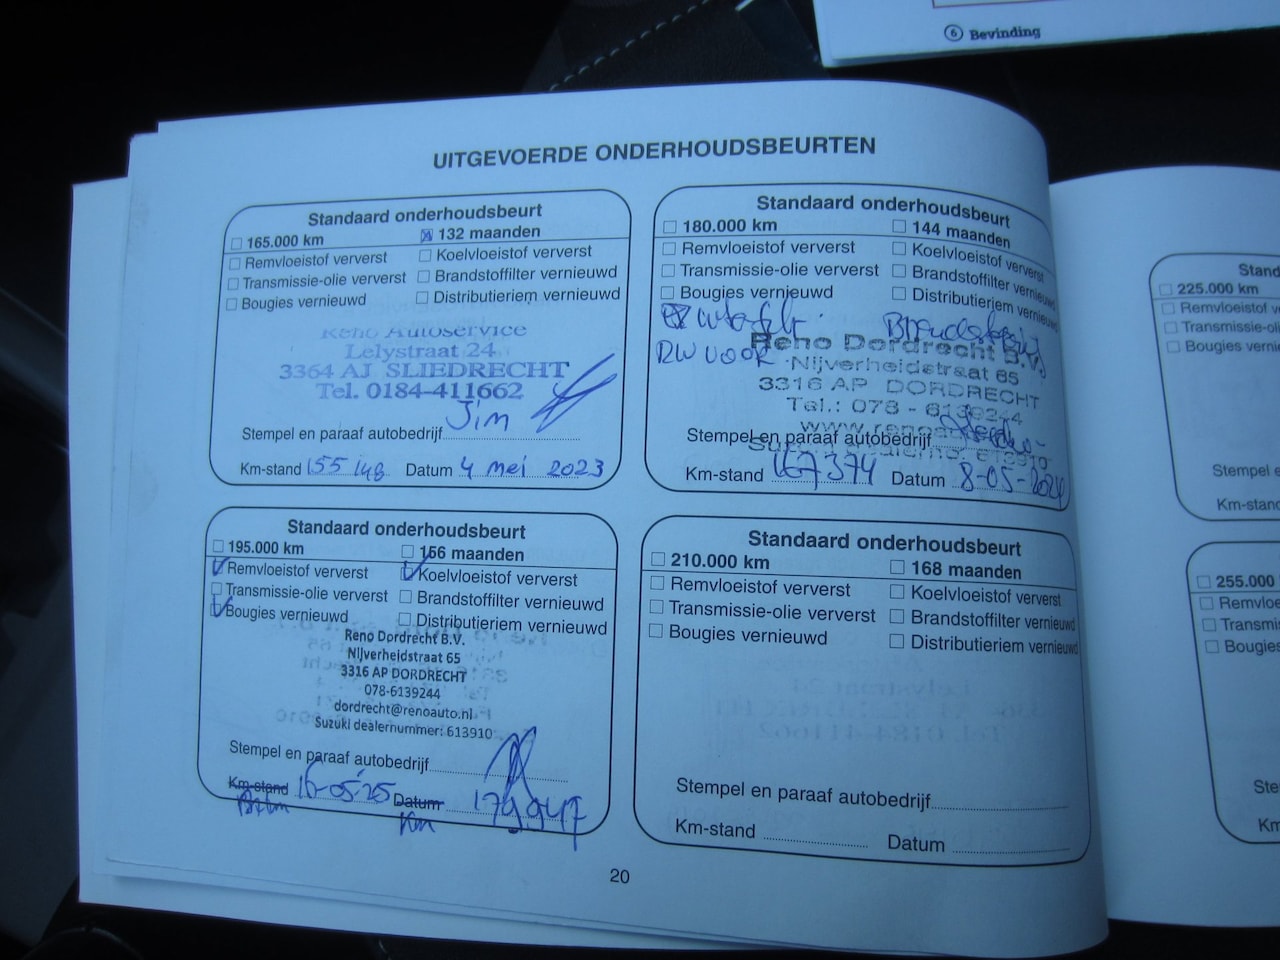 6 Bevinding
UITGEVOERDE ONDERHOUDSBEURTEN
Standaard onderhoudsbeurt
165.000 km 132 maanden
Remvloeistof ververst Koelvloeistof ververst
Transmissie-olie ververst Brandstoffilter vernieuwd
Bougies vernieuwd Distributieriem vernieuwd
Reno Autoservice
Lelystraat 24
3364 AJ SLIEDRECHT
Tel. 0184-411662
Jim
Stempel en paraaf autobedrijf
Km-stand 155 Datum 4 mei 2023
Standaard onderhoudsbeurt
180.000 km 144 maanden
Remvloeistof ververst Koelvloeistof ververst
Transmissie-olie ververst Brandstoffilter vernieuwd
Bougies vernieuwd Distributieriem vernieuwd
RW voor
Reno Dordrecht B.V.
Nijverheidstraat 65
3316 AP DORDRECHT
Tel.: 078 - 6139244
Stempel en paraaf autobedrijf
Km-stand 167374 Datum 8-05-2024
Standaard onderhoudsbeurt
195.000 km 156 maanden
Remvloeistof ververst Koelvloeistof ververst
Transmissie-olie ververst Brandstoffilter vernieuwd
Bougies vernieuwd Distributieriem vernieuwd
Reno Dordrecht B.V.
Nijverheidstraat 65
3316 AP DORDRECHT
078-6139244
dordrecht@renoauto.nl
Suzuki dealernummer: 613910
Stempel en paraaf autobedrijf
Km-stand 16-05-25 Datum 179.947
Datum Km
Standaard onderhoudsbeurt
210.000 km 168 maanden
Remvloeistof ververst Koelvloeistof ververst
Transmissie-olie ververst Brandstoffilter vernieuwd
Bougies vernieuwd Distributieriem vernieuwd
Stempel en paraaf autobedrijf
Km-stand Datum
20
225.000 km
255.000